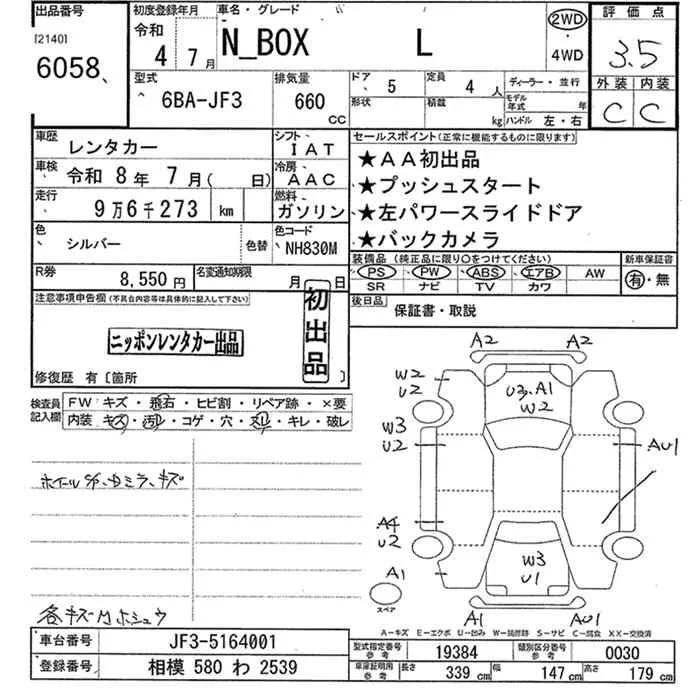 出品番号 初度登録年月 車名・グレード 2WD 評価点
[2140] 令和 N_BOX L ・ 3.5
6058 4 7月 4WD
型式 排気量 ドア 5 定員 4人 ディーラー・並行 外装 内装
6BA-JF3 660 CC 形状 積載 kg モデル年式 年 ハンドル 左・右 C C
車歴 レンタカー シフト IAT セールスポイント(正常に機能するものに限ります)
車検 令和 8年 7月( 日) 冷房 AAC ★AA初出品
走行 9万6千273 km 燃料 ガソリン ★プッシュスタート
★左パワースライドドア
色 シルバー 色替 色コード NH830M ★バックカメラ
装備品(純正品に限り○をつけてください) 新車保証書
R券 8,550円 名変通知期限 月 日 PS PW ABS エアB AW 有・無
SR ナビ TV カワ
注意事項申告欄(不具合内容等は具体的に記入して下さい) 初出品 後日品 保証書・取説
ニッポンレンタカー出品
修復歴 有[箇所 ]
検査員記入欄 FW キズ・飛石・ヒビ割・リペア跡・×要
内装 キズ・汚レ・コゲ・穴・スレ・キレ・破レ
A2 A2
W2 U2 U3.A1 W2
W3 U2 AU1
A4 U2 W3 U1
A1 スペア A1 AU1
各キズ ホシュウ
A−キズ E−エクボ U−凹み W−補修跡 S−サビ C−腐食 XX−交換済
車台番号 JF3-5164001 型式指定番号 参考 19384 類別区分番号 参考 0030
登録番号 相模 580 わ 2539 車庫証明用 参考 長さ 339 cm 幅 147 cm 高さ 179 cm